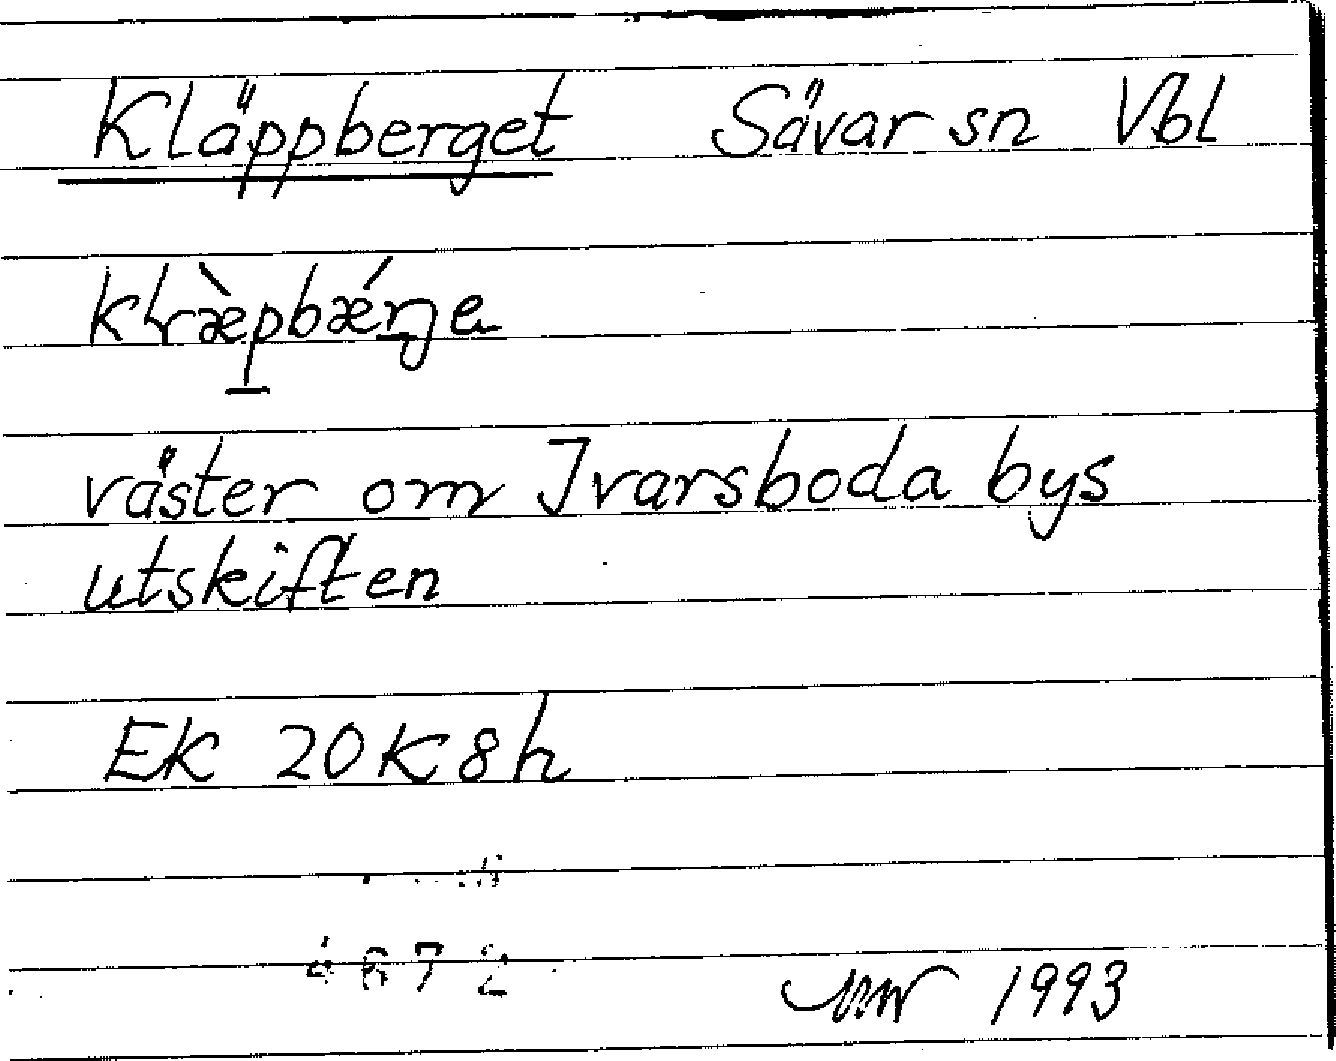 Kläppberget Sävar sn Vbl
väster om Ivarsboda bys
utskiften
EK 20K8h
4672
1993